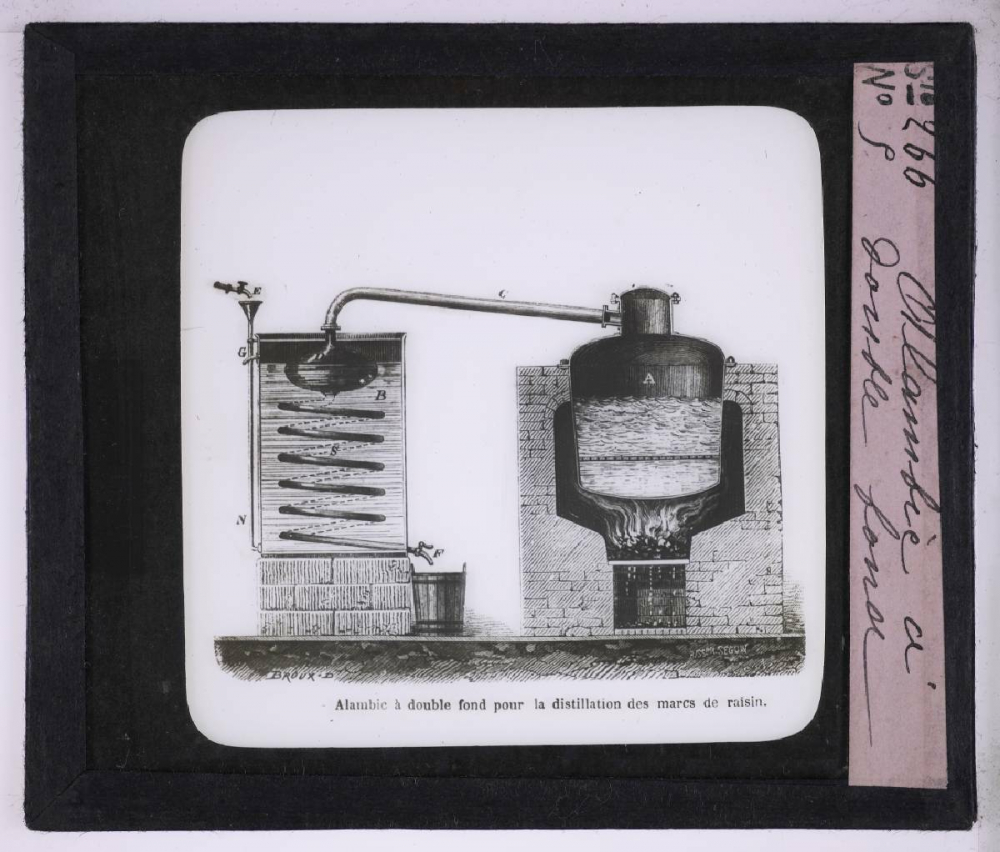 E
C
G
A
B
S
N
F
BROUX·D
SEGUIN
Alambic à double fond pour la distillation des marcs de raisin.
Sie 466
No 5
Allambic à
double fond